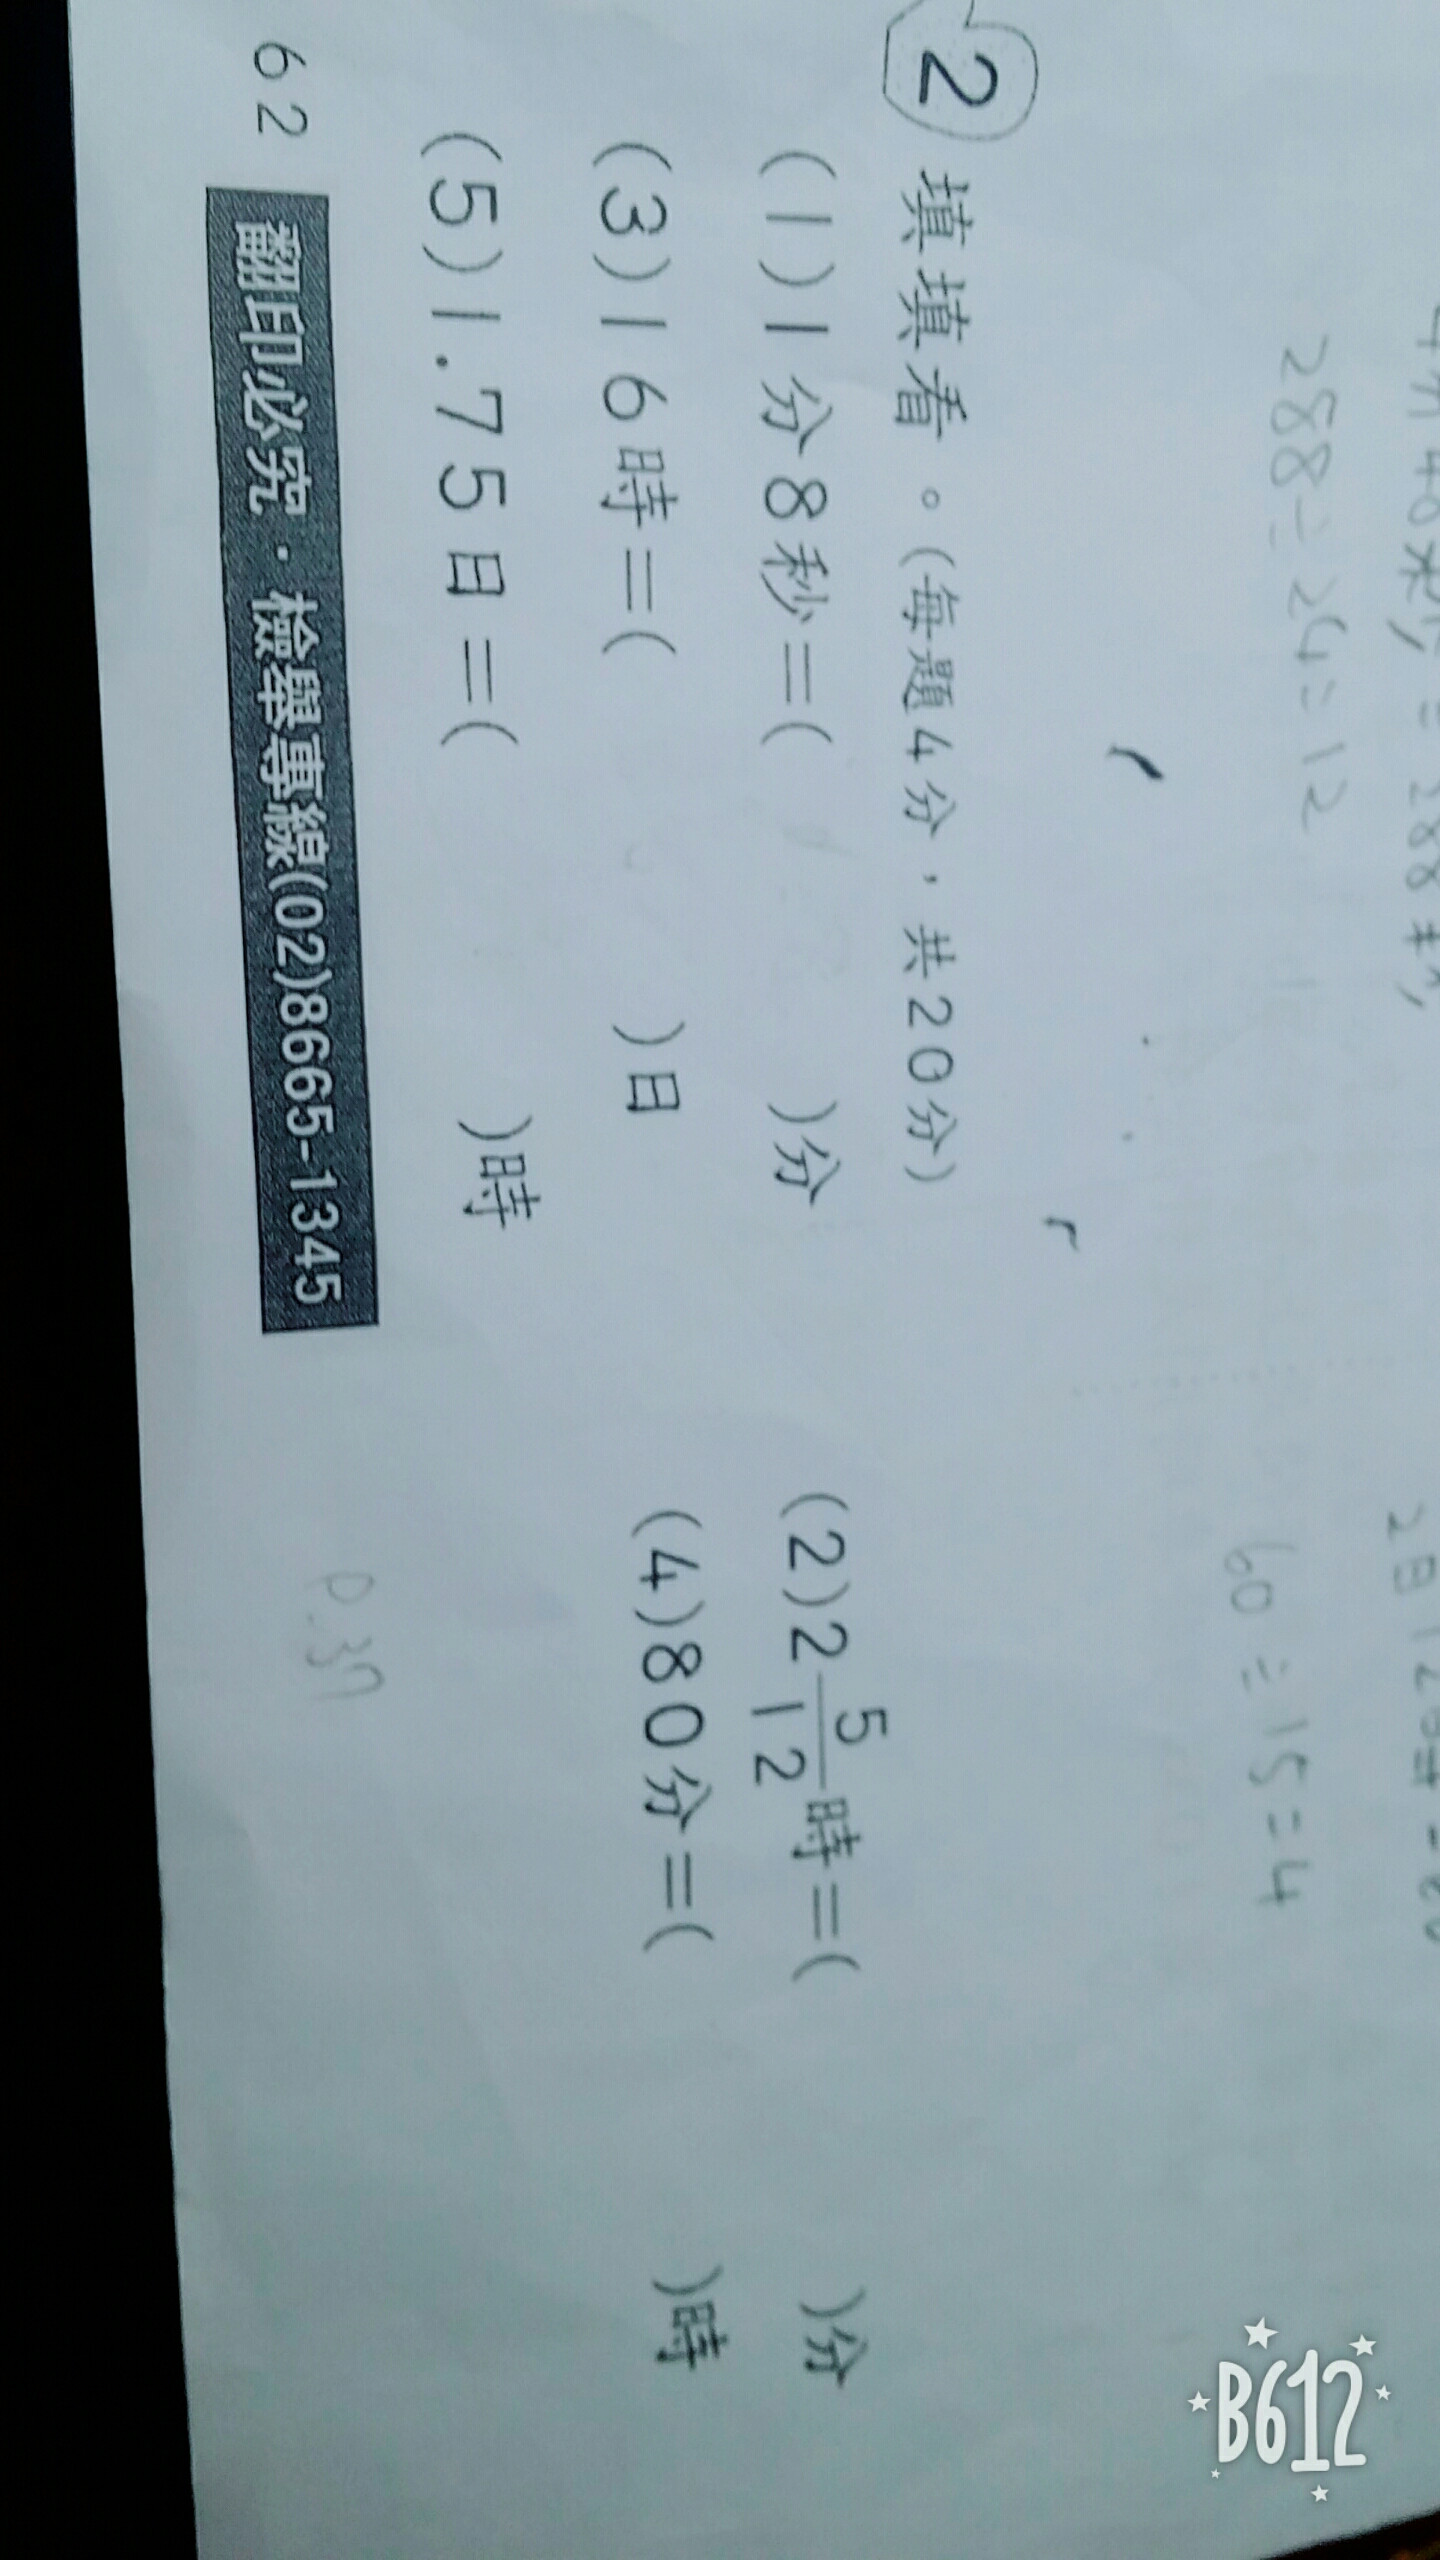 288÷24=12
60÷15=4
2 填填看。(每題4分,共20分)
(1)1分8秒=(　　)分　(2)2 5/12 時=(　　)分
(3)16時=(　　)日　(4)80分=(　　)時
(5)1.75日=(　　)時
62 翻印必究·檢舉專線(02)8665-1345
p.37
B612